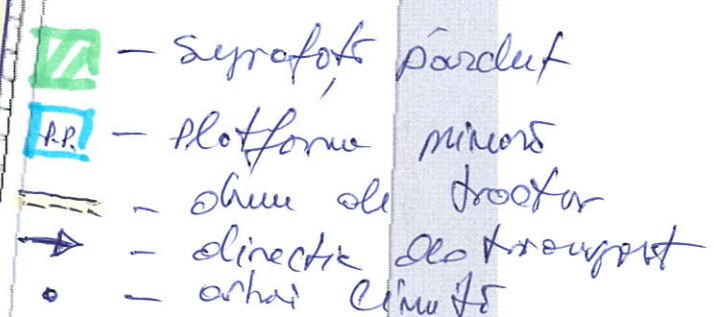 — Suprafață parchet
P.P. — Platforma primară
— drum de tractor
— direcție de transport
— arbori limită